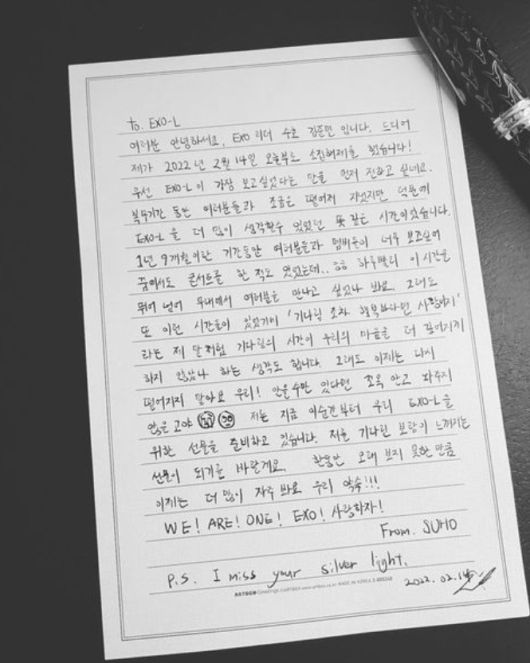 to. EXO-L
여러분 안녕하세요, EXO 리더 수호 김준면 입니다. 드디어
제가 2022년 2월 14일 오늘부로 소집해제를 했습니다!
우선 EXO-L이 가장 보고싶었다는 말을 먼저 전하고 싶네요.
복무기간 동안 여러분들과 조금은 떨어져 지냈지만 덕분에
EXO-L 을 더 많이 생각할수 있었던 뜻 깊은 시간이었습니다.
1년 9개월이란 기간동안 여러분들과 멤버들이 너무 보고싶어
꿈에서도 콘서트를 한 적도 있었는데.. ㅎㅎ 하루빨리 이 시간을
뛰어 넘어 무대에서 여러분을 만나고 싶었나 봐요. 그래도
또 이런 시간들이 있었기에 '기다림 조차 행복하다면 사랑이다'
라는 제 말처럼 기다림의 시간이 우리의 마음을 더 깊어지게
하지 않았나 하는 생각도 합니다. 그래도 이제는 다시
떨어지지 말아요 우리! 안을수만 있다면 꼬옥 안고 놔주지
않을 고야 저는 지금 이순간부터 우리 EXO-L을
위한 선물을 준비하고 있습니다. 저를 기다린 보람이 느껴지는
선물이 되기를 바랄게요. 한동안 오래 보지 못한 만큼
이제는 더 많이 자주 봐요 우리 약속!!!
WE! ARE! ONE! EXO! 사랑하자!
From. SUHO
p.s. I miss your silver light.
2022. 02. 14